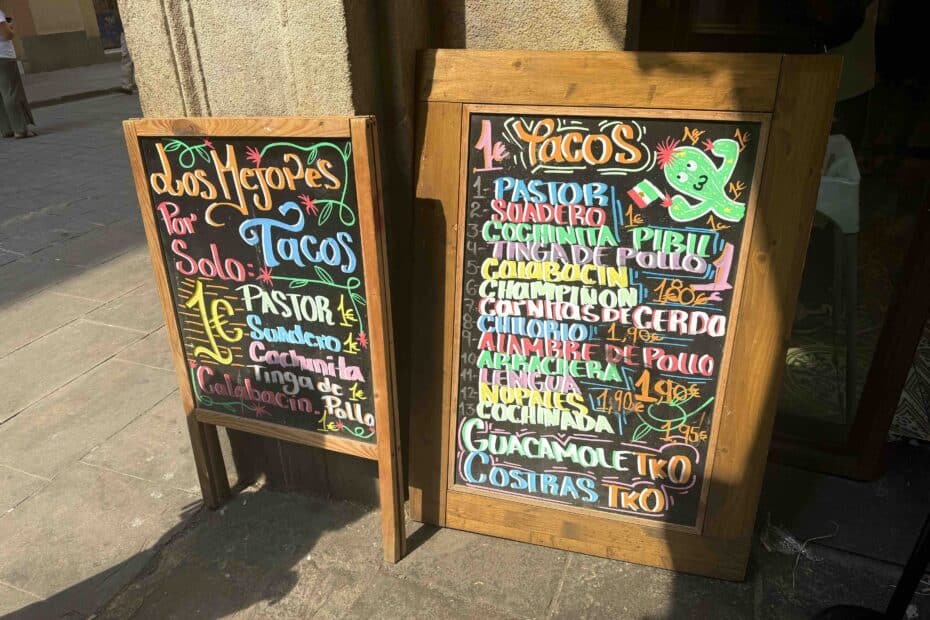 Los Mejores
Tacos
Por
Solo:
1€
PASTOR 1€
Suadero 1€
Cochinita
Tinga de 1€
Pollo
Calabacin. 1€
1€ Tacos
1€
1€
1€
1- PASTOR
2- SUADERO 1€
3 COCHINITA PIBIL
4- TINGA DE POLLO 1
5 CALABACIN
6 CHAMPIÑON 1,80€
7 CARNITAS DE CERDO
8 CHILORIO 1,90€
9- ALAMBRE DE POLLO
10 ARRACHERA
11- LENGUA 1,90€
12- NOPALES 1,90€
13 COCHINADA 1,95€
GUACAMOLE TKO
COSTRAS TKO